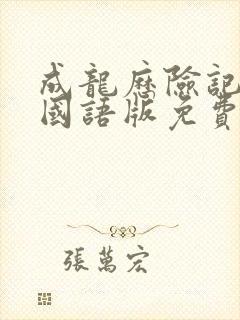 成龍歷險記
國語版免費
張萬宏